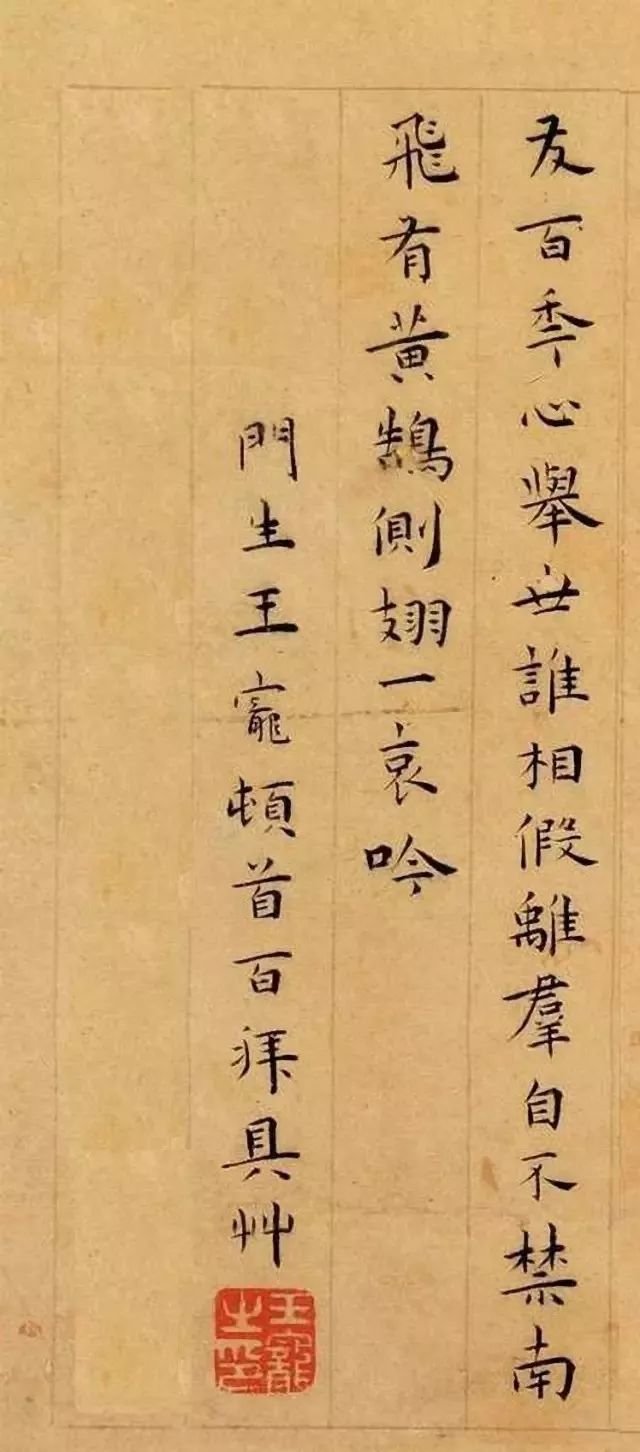 友百年心舉世誰相假離羣自不禁南
飛有黃鵠側翅一哀吟
門生王寵頓首百拜具艸
王寵之印